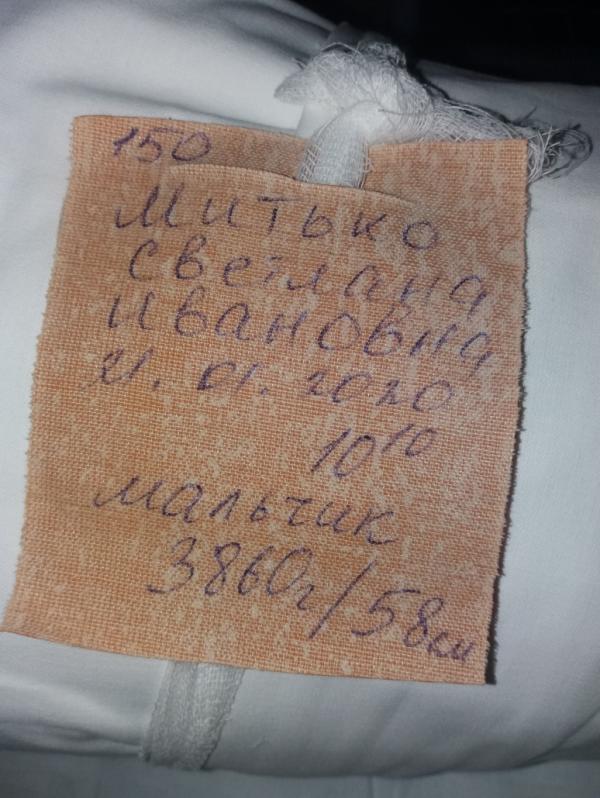 150
Митько
Светлана
Ивановна
21.01.2020
10 10
мальчик
3860г/58см